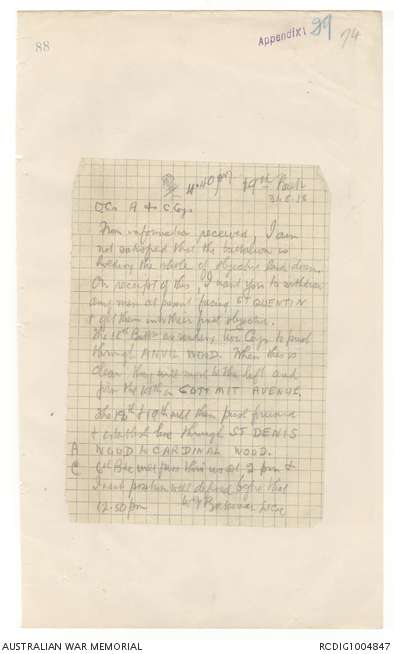 88
Appendix 1 29 74
4.40 pm 19th Battn
31.8.18
O.C. A & C Coys
From information received, I am
not satisfied that the battalion is
holding the whole of objective laid down.
On receipt of this, I want you to withdraw
any men at present facing ST QUENTIN
& get them into their final objective.
The 18th Battn are sending two Coys to push
through ANVIL WOOD. When this is
clear they will move to the left and
join the 19th in GOTTMIT AVENUE.
The 18th & 19th will then push forward
& establish line through ST DENIS
A WOOD & CARDINAL WOOD.
C 6th Bde will pass thro us at 2 pm &
I want position well defined before that
12.50 pm
AUSTRALIAN WAR MEMORIAL
RCDIG1004847